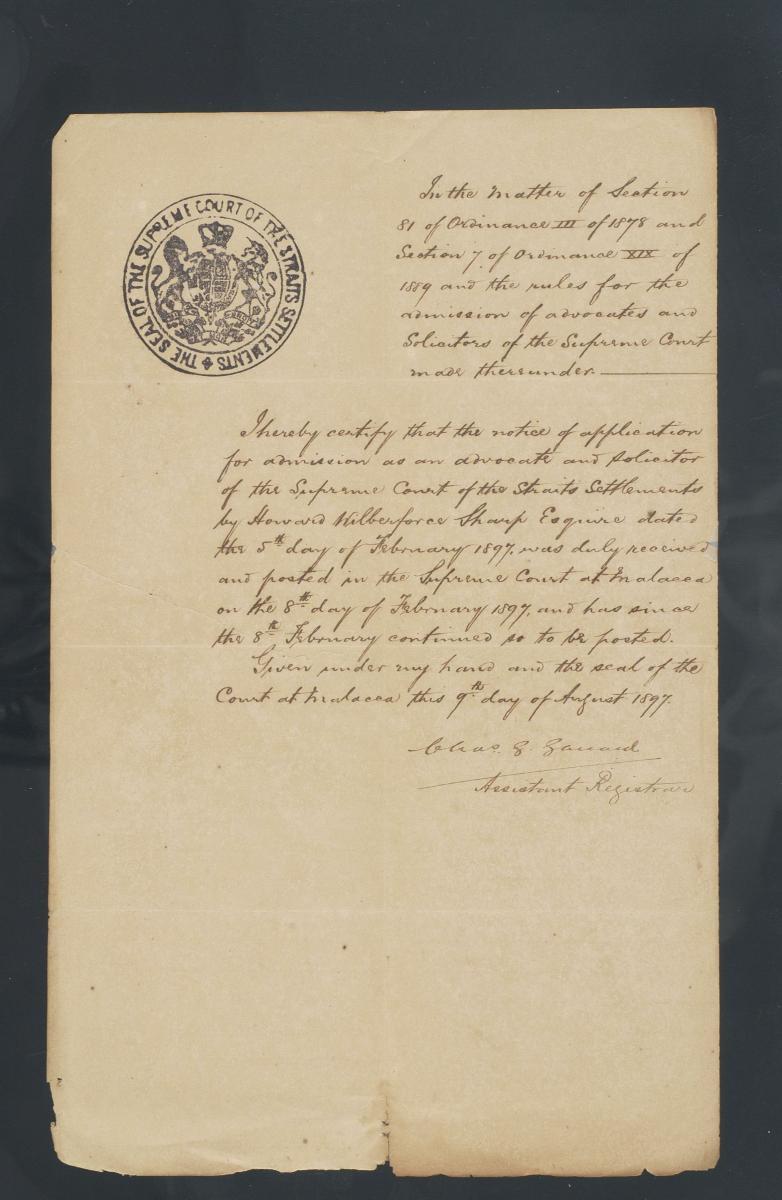 THE SEAL OF THE SUPREME COURT OF THE STRAITS SETTLEMENTS
In the Matter of Section
81 of Ordinance III of 1878 and
Section 7 of Ordinance XIX of
1889 and the rules for the
admission of advocates and
Solicitors of the Supreme Court
made thereunder.
I hereby certify that the notice of application
for admission as an advocate and solicitor
of the Supreme Court of the Straits Settlements
by Howard Wilberforce Sharp Esquire dated
the 5th day of February 1897, was duly received
and posted in the Supreme Court at Malacca
on the 8th day of February 1897, and has since
the 8th February continued so to be posted.
Given under my hand and the seal of the
Court at Malacca this 9th day of August 1897.
Chas.
Assistant Registrar